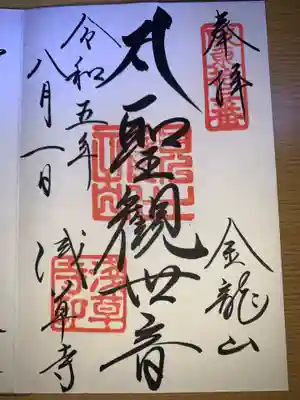 奉拝
金龍山
聖觀世音
令和五年
八月一日
浅草寺